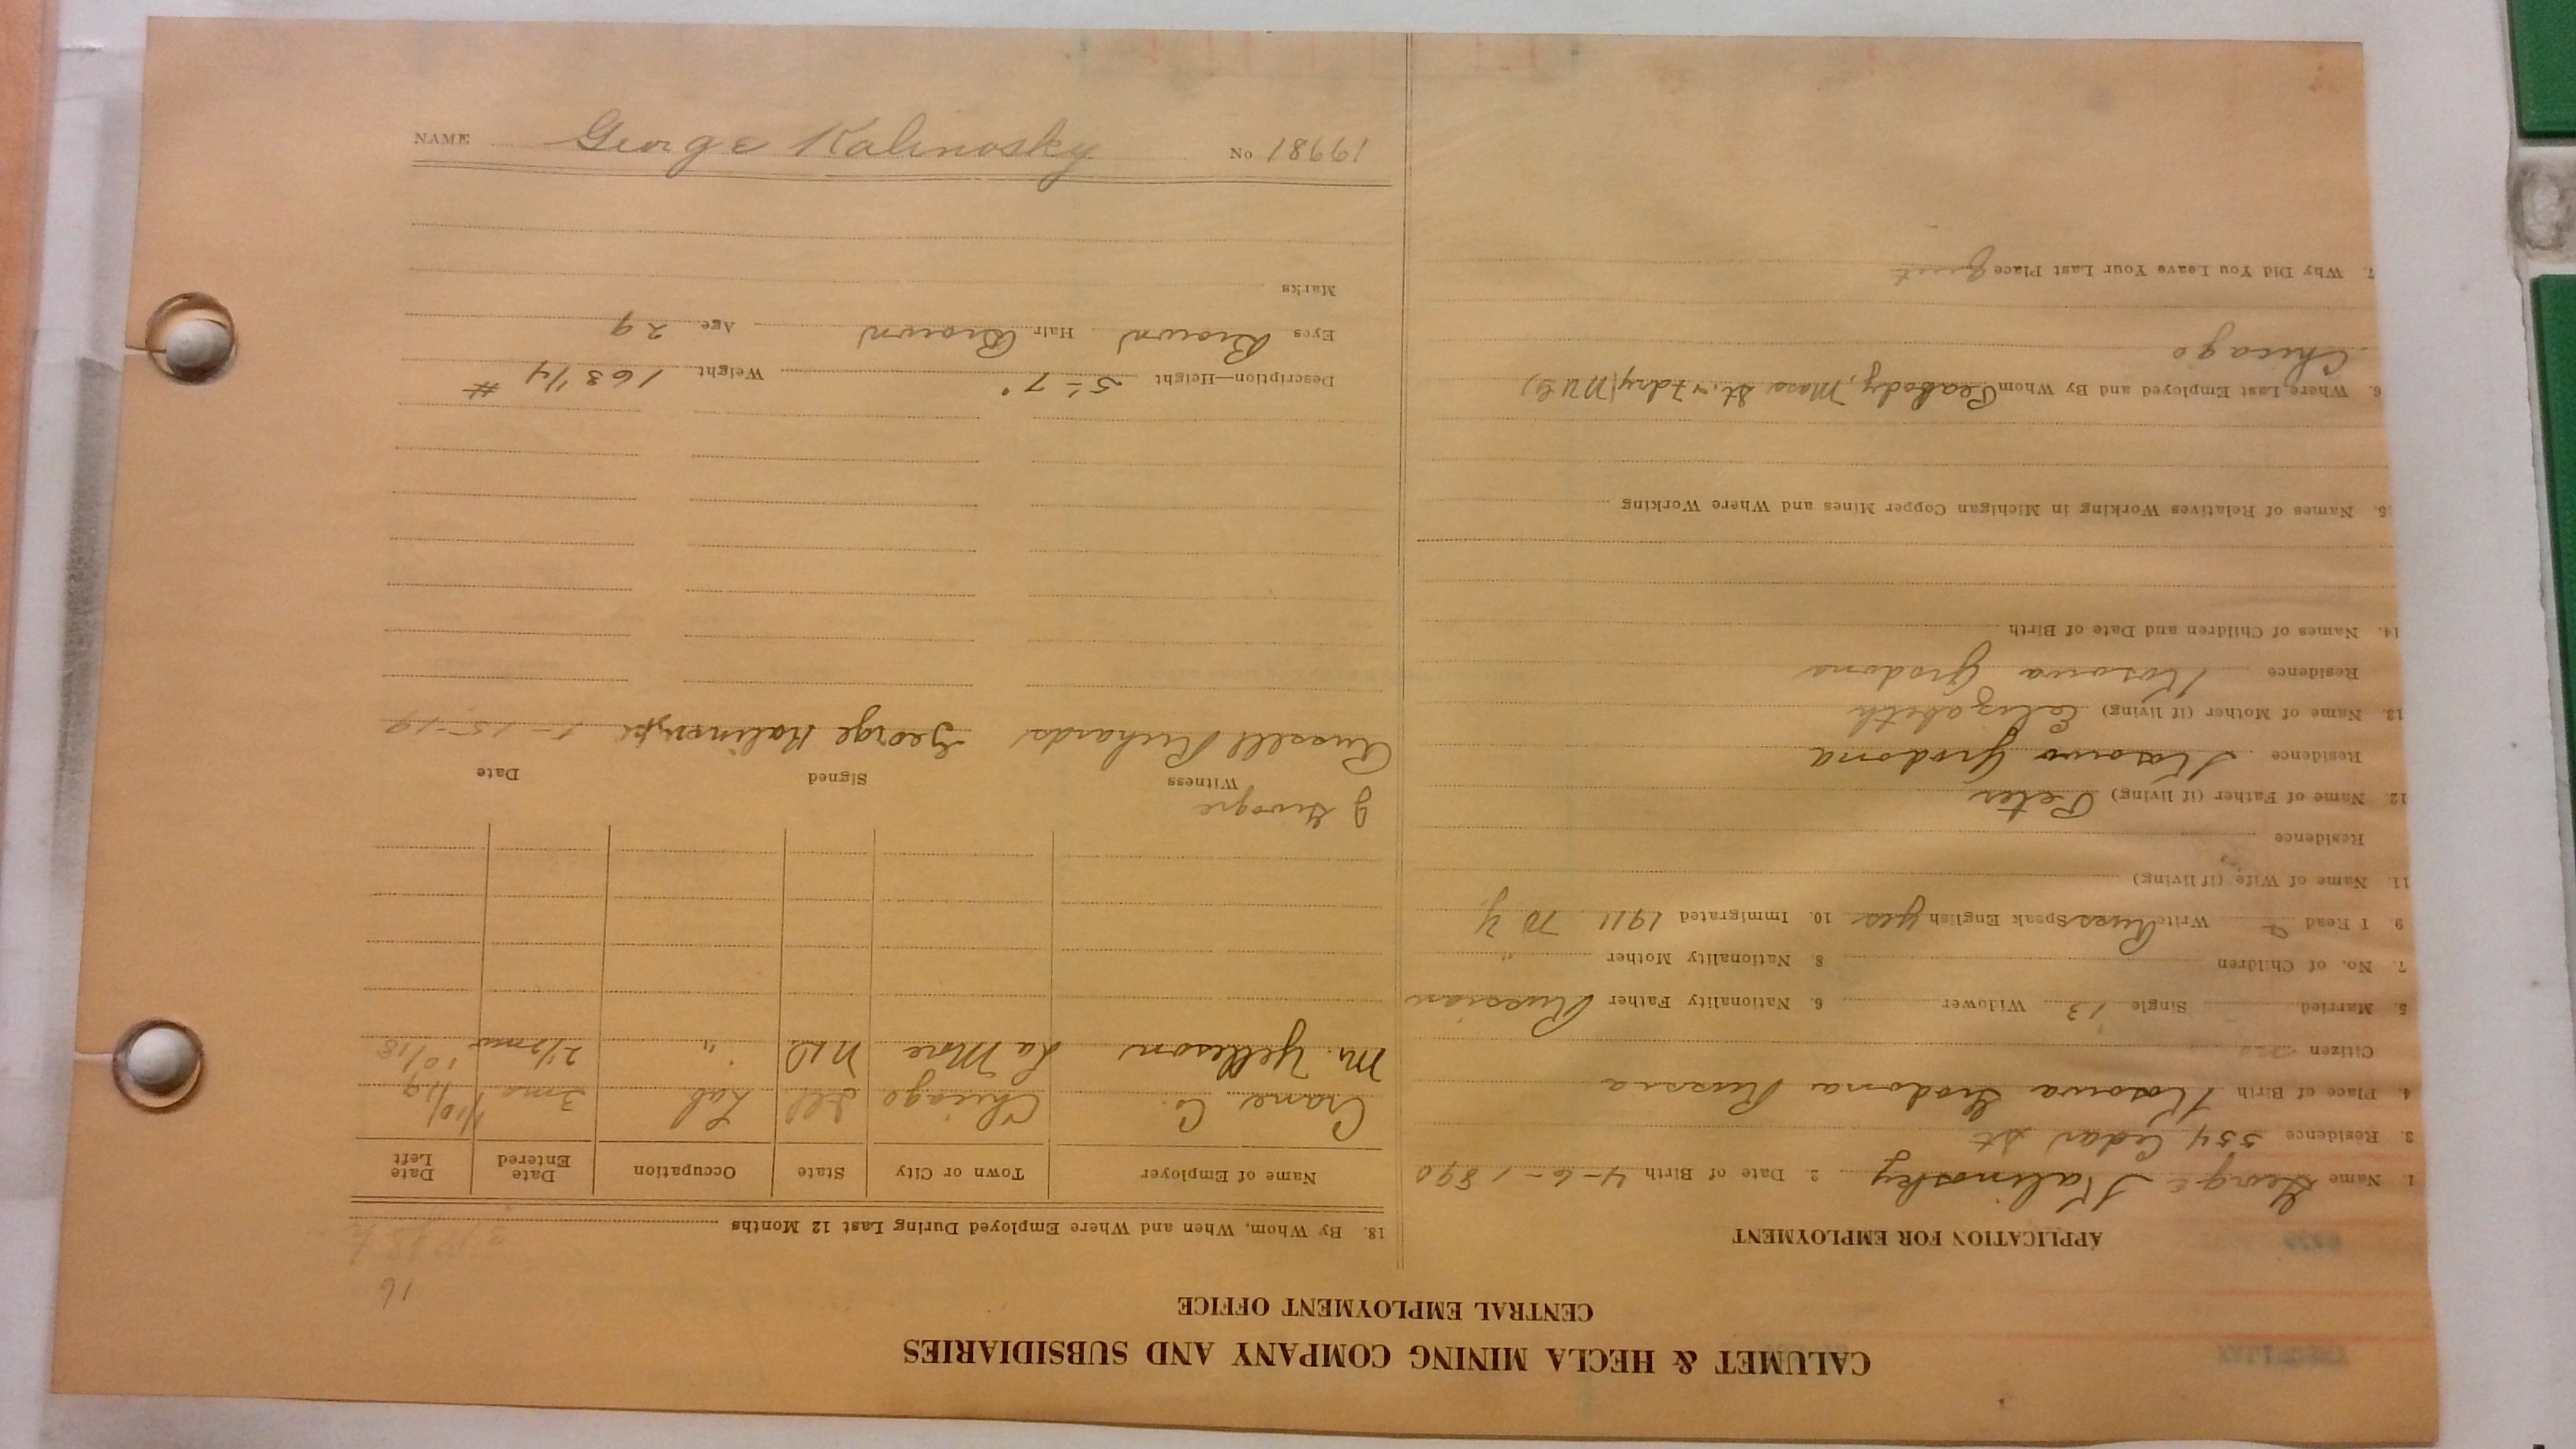 CALUMET & HECLA MINING COMPANY AND SUBSIDIARIES
CENTRAL EMPLOYMENT OFFICE
APPLICATION FOR EMPLOYMENT
1. Name George Kalinosky 2. Date of Birth 4-6-1890
3. Residence 554 Cedar St
4. Place of Birth Kosowa Grodona Russia
Citizen
5. Married Single 13 Widower 6. Nationality Father Russian
7. No. of Children 8. Nationality Mother "
9. I Read Write Russ Speak English yes 10. Immigrated 1911 N Y
11. Name of Wife (if living)
Residence
12. Name of Father (if living) Peter
Residence Kosowo Grodona
13. Name of Mother (if living) Elizabeth
Residence Kosowa Grodona
14. Names of Children and Date of Birth
5. Names of Relatives Working in Michigan Copper Mines and Where Working
6. Where Last Employed and By Whom Peabody, Mass
Chicago
7. Why Did You Leave Your Last Place quit
16
18. By Whom, When and Where Employed During Last 12 Months
Name of Employer Town or City State Occupation Date Entered Date Left
Crane Co. Chicago Ill Lab 3 mo 1/10/19
Mr. Yelleson La More N.D. " 2 1/2 mo 10/18
Witness Signed Date
Russell Richards George 1-15-19
Description—Height 5'-7" Weight 163 1/4 #
Eyes Brown Hair Brown Age 29
Marks
NAME George Kalinosky
No 19981